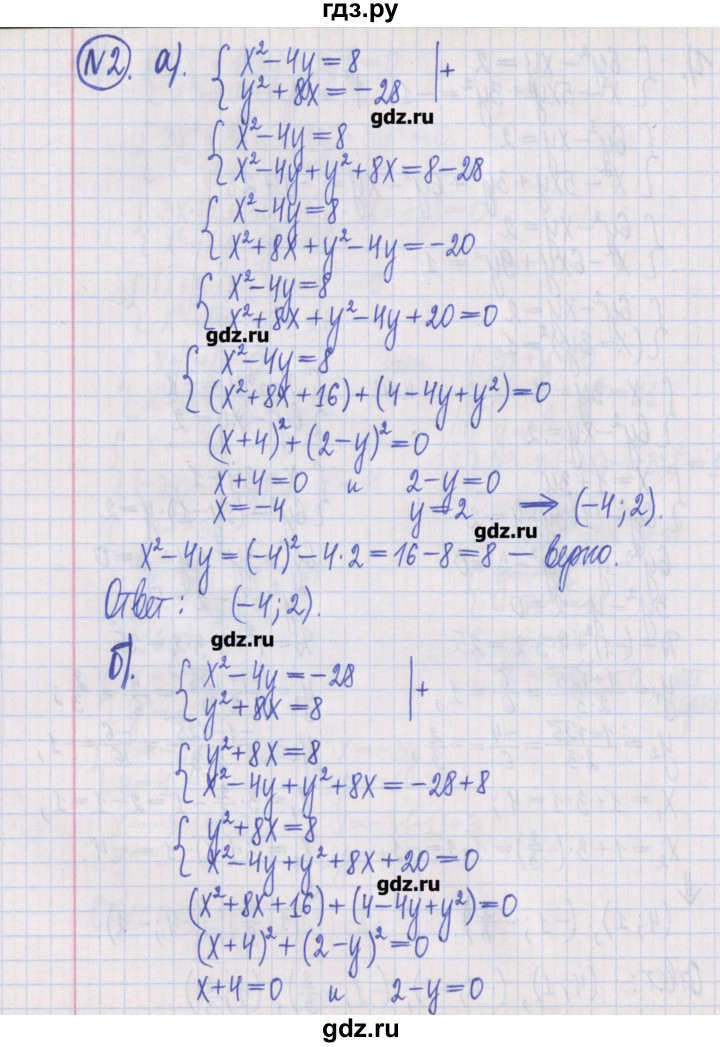 гдз.ру
№2. а). { x² − 4y = 8 | +
{ y² + 8x = −28
gdz.ru
{ x² − 4y = 8
{ x² − 4y + y² + 8x = 8 − 28
{ x² − 4y = 8
{ x² + 8x + y² − 4y = −20
{ x² − 4y = 8
{ x² + 8x + y² − 4y + 20 = 0
gdz.ru
{ x² − 4y = 8
{ (x² + 8x + 16) + (4 − 4y + y²) = 0
(x + 4)² + (2 − y)² = 0
x + 4 = 0 и 2 − y = 0
x = −4 y = 2 ⇒ (−4; 2).
gdz.ru
x² − 4y = (−4)² − 4·2 = 16 − 8 = 8 — верно.
Ответ: (−4; 2).
gdz.ru
б). { x² − 4y = −28 | +
{ y² + 8x = 8
{ y² + 8x = 8
{ x² − 4y + y² + 8x = −28 + 8
{ y² + 8x = 8
{ x² − 4y + y² + 8x + 20 = 0
gdz.ru
(x² + 8x + 16) + (4 − 4y + y²) = 0
(x + 4)² + (2 − y)² = 0
x + 4 = 0 и 2 − y = 0
gdz.ru